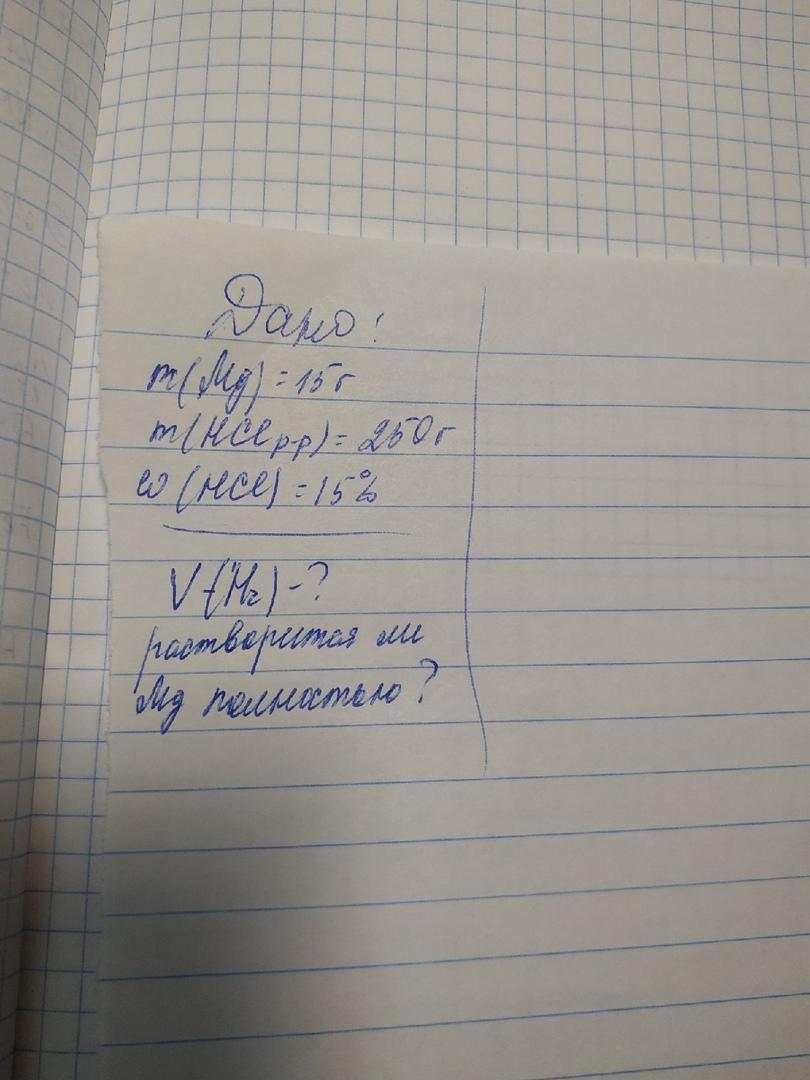 Дано:
m(Mg) = 15г
m(HCl р-р) = 250г
ω(HCl) = 15%
V(H₂) - ?
растворится ли
Mg полностью?